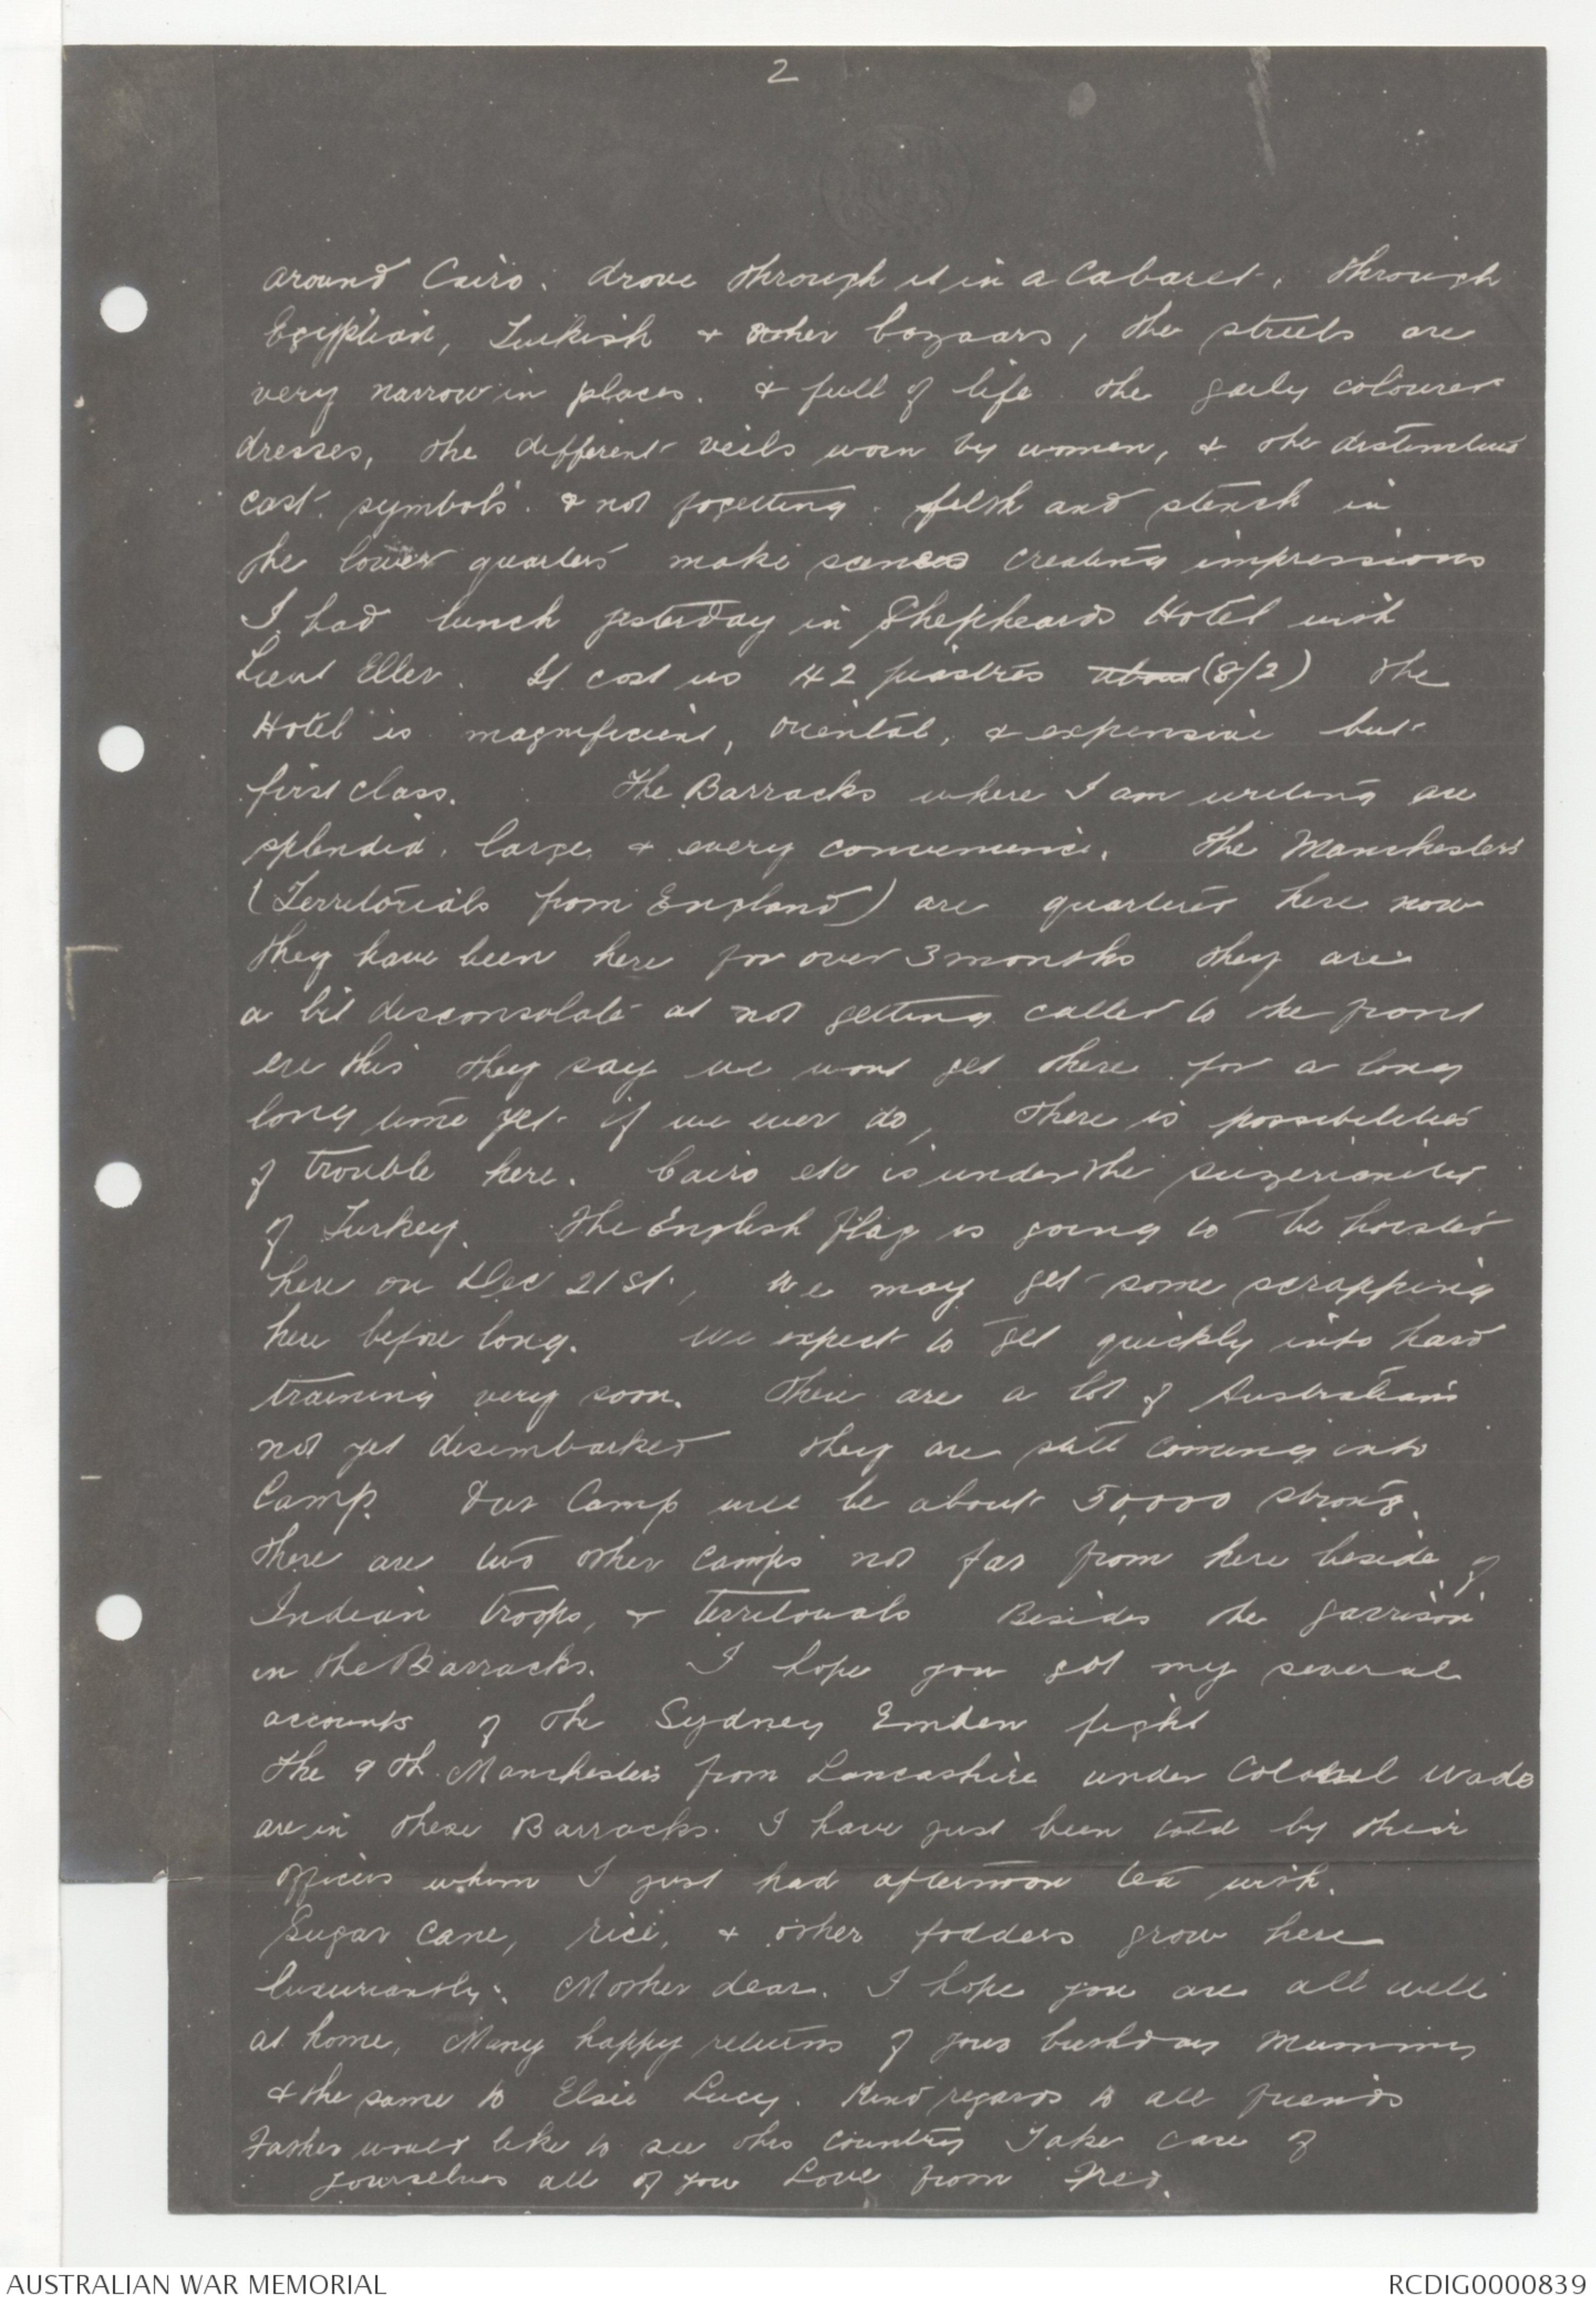 2
around Cairo. drove through it in a Cabaret. through
Egyptian, Turkish & other bazaars, the streets are
very narrow in places. & full of life the gaily coloured
dresses, the different veils worn by women, & the distinctive
cast symbols & not forgetting filth and stench in
the lower quarters make scenes creating impressions
I had lunch yesterday in Shepheards Hotel with
Lieut Eller. It cost us 42 piastres about (8/2) the
Hotel is magnificient, oriental, & expensive but
first class. The Barracks where I am writing are
splendid, large, & every convenience. The Manchesters
(Territorials from England) are quartered here now
they have been here for over 3 months they are
a bit disconsolate at not getting called to the front
ere this they say we wont get there for a long
long time yet if we ever do, There is possibilities
of trouble here. Cairo etc is under the
of Turkey. The English flag is going to be hoisted
here on Dec 21st, We may get some scrapping
here before long. We expect to get quickly into hard
training very soon. There are a lot of Australians
not yet disembarked they are still coming into
Camp. Our Camp will be about 50,000 strong.
There are two other camps not far from here beside of
Indian troops, & territorials Besides the garrison
in the Barracks. I hope you got my several
accounts of the Sydney Emden fight
The 9th Manchesters from Lancashire under Colonel Wade
are in these Barracks. I have just been told by their
officers whom I just had afternoon tea with.
Sugar cane, rice, & other fodders grow here
luxuriantly. Mother dear. I hope you are all well
at home, Many happy returns of your birthday Mummy
& the same to Elsie Lucy. Kind regards to all friends
Father would like to see this country Take care of
yourselves all of you Love from Fred.
AUSTRALIAN WAR MEMORIAL
RCDIG0000839